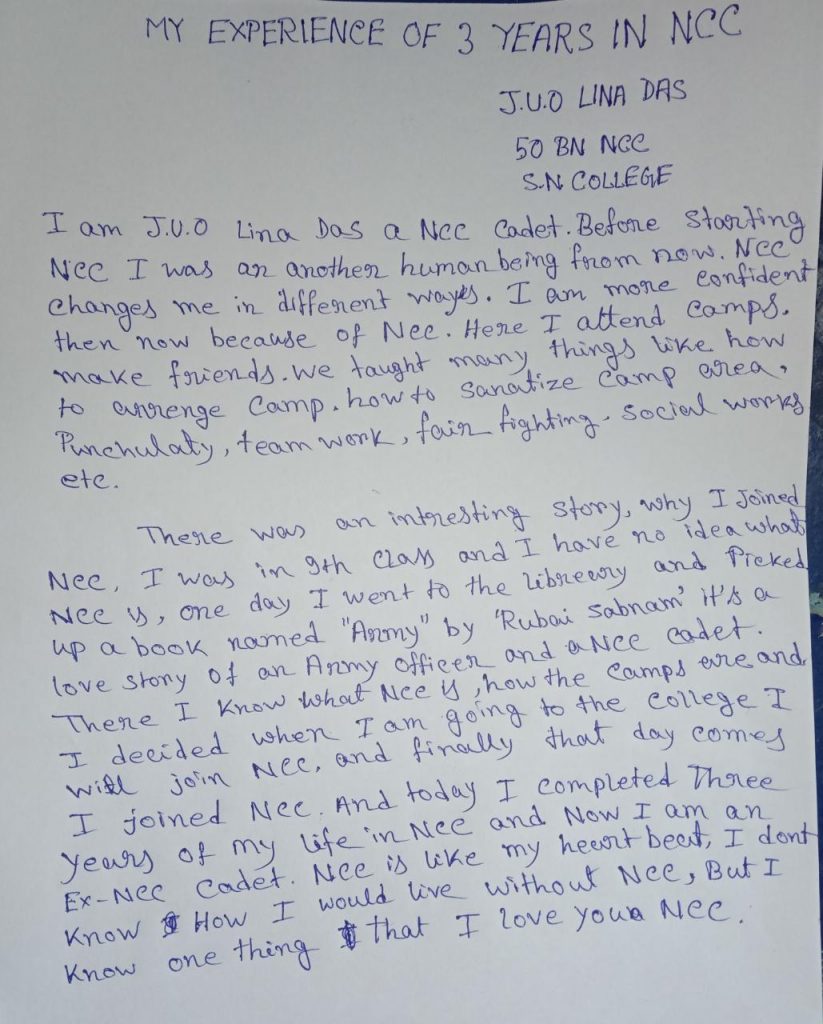 MY EXPERIENCE OF 3 YEARS IN NCC
J.U.O LINA DAS
50 BN NCC
S.N COLLEGE
I am J.U.O Lina Das a NCC Cadet. Before Starting
NCC I was an another human being from now. NCC
Changes me in different wayes. I am more confident
then now because of NCC. Here I attend Camps.
make friends. we taught many things like how
to arrenge Camp. how to Sanatize Camp area,
Punchulaty, team work, fair fighting. Social works
etc.
There was an intresting Story, why I Joined
NCC, I was in 9th Class and I have no idea what
NCC is, one day I went to the libreary and Picked
up a book named "Army" by 'Rubai Sabnam' it's a
love story of an Army officer and a NCC cadet.
There I Know what NCC is, how the Camps are and
I decided when I am going to the College I
will join NCC, and finally that day comes
I joined NCC. And today I Completed Three
years of my life in NCC and Now I am an
Ex-NCC Cadet. NCC is like my heart beat, I dont
Know How I would live without NCC, But I
Know one thing that I love you NCC.